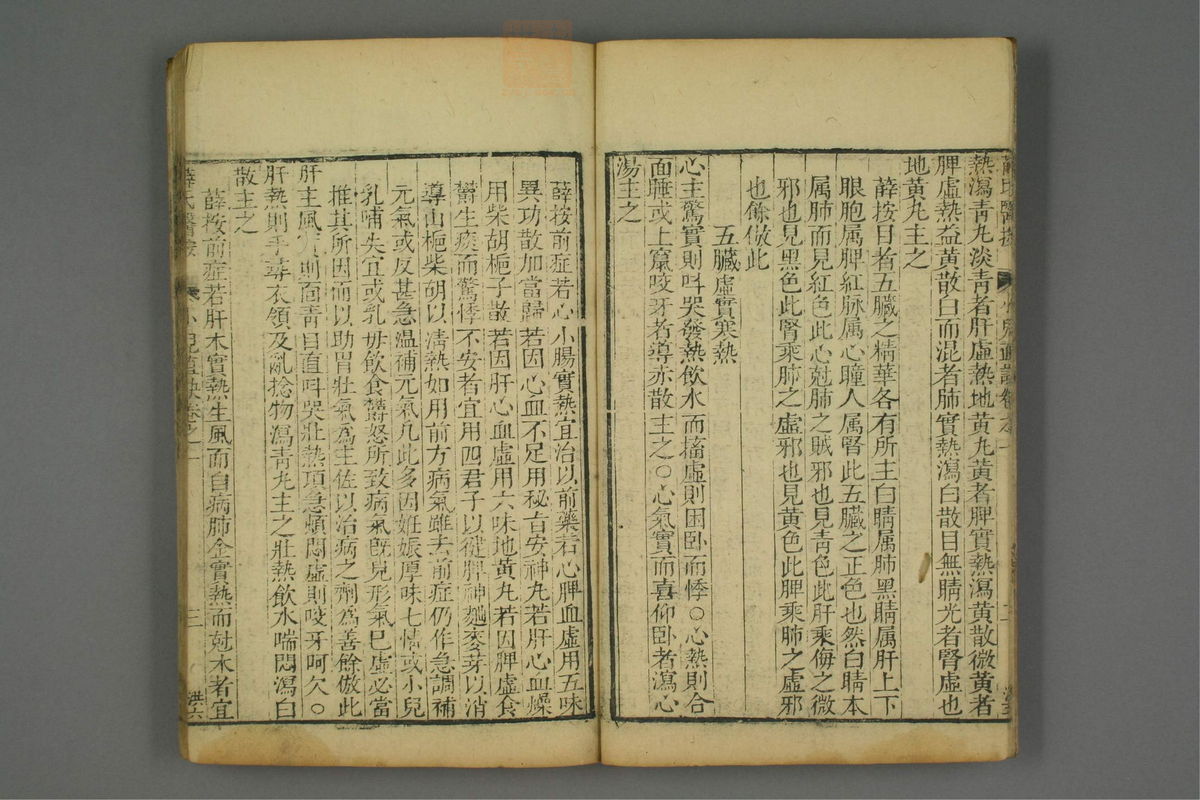 熱瀉青丸淡青者肝虛熱地黃丸黃者脾實熱瀉黃散微黃者
脾虛熱益黃散白而混者肺實熱瀉白散目無睛光者腎虛也
地黃丸主之
薛按目者五臟之精華各有所主白睛属肺黑睛属肝上下
眼胞属脾紅脉属心瞳人属腎此五臟之正色也然白睛本
属肺而見紅色此心尅肺之賊邪也見青色此肝乘侮之微
邪也見黑色此腎乘肺之虛邪也見黃色此脾乘肺之虛邪
也餘倣此
五臟虛實寒熱
心主驚實則呌哭發熱飲水而搐虛則困卧而悸○心熱則合
面睡或上竄咬牙者導赤散主之○心氣實而喜仰卧者瀉心
湯主之
薛按前症若心小腸實熱宜治以前藥若心脾血虛用五味
異功散加當歸若因心血不足用秘旨安神丸若肝心血燥
用柴胡梔子散若因肝心血虛用六味地黃丸若因脾虛食
欝生痰而驚悸不安者宜用四君子以健脾神麯麥芽以消
導山梔柴胡以清熱如用前方病氣雖去前症仍作急調補
元氣或反甚急温補元氣凡此多因妊娠厚味七情或小兒
乳哺失宜或乳母飲食欝怒所致病氣旣見形氣巳虛必當
推其所因而以助胃壯氣為主佐以治病之劑為善餘倣此
肝主風實則面青目直呌哭壯熱項急頓悶虛則咬牙呵欠○
肝熱則手尋衣領及亂捻物瀉青丸主之壯熱飲水喘悶瀉白
散主之
薛按前症若肝木實熱生風而自病肺金實熱而尅木者宜
薛氏醫按
小兒直訣卷之一
三
洪六